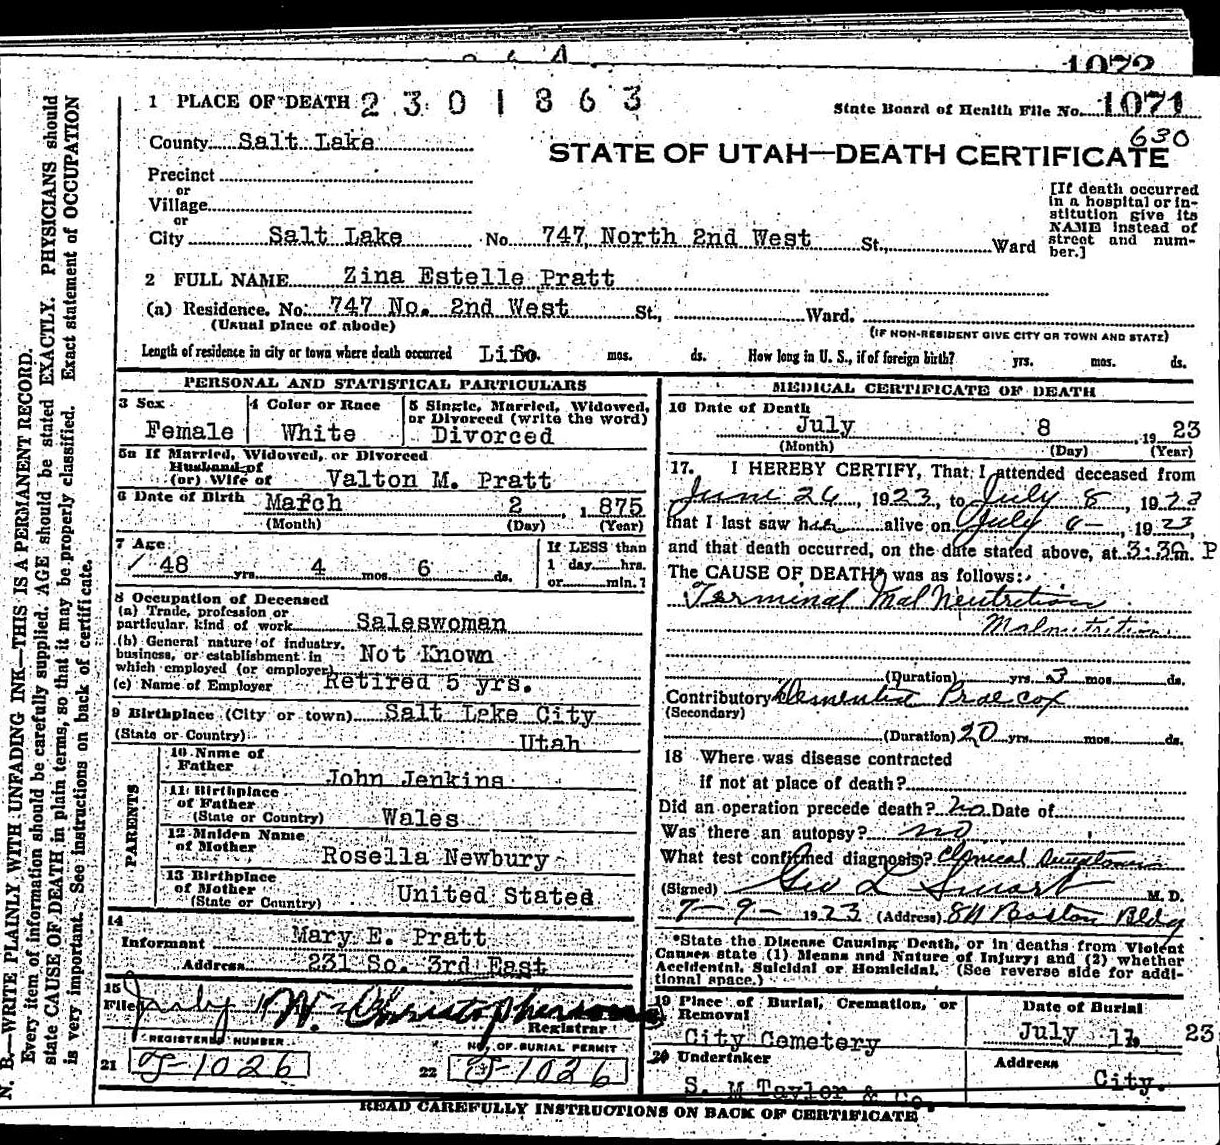 1072
1 PLACE OF DEATH 2301863
State Board of Health File No. 1071
630
County Salt Lake
STATE OF UTAH—DEATH CERTIFICATE
Precinct
or
Village
or
City Salt Lake No. 747 North 2nd West St., Ward
[If death occurred
in a hospital or in-
stitution give its
NAME instead of
street and num-
ber.]
2 FULL NAME Zina Estelle Pratt
(a) Residence. No. 747 No. 2nd West St., Ward.
(Usual place of abode)
(IF NON-RESIDENT GIVE CITY OR TOWN AND STATE)
Length of residence in city or town where death occurred Life. mos. ds. How long in U. S., if of foreign birth? yrs. mos. ds.
N. B.—WRITE PLAINLY WITH UNFADING INK—THIS IS A PERMANENT RECORD.
Every item of information should be carefully supplied. AGE should be stated EXACTLY. PHYSICIANS should
state CAUSE OF DEATH in plain terms, so that it may be properly classified. Exact statement of OCCUPATION
is very important. See instructions on back of certificate.
PERSONAL AND STATISTICAL PARTICULARS
3 Sex
Female
4 Color or Race
White
5 Single, Married, Widowed,
or Divorced (write the word)
Divorced
5a If Married, Widowed, or Divorced
Husband of
(or) Wife of Valton M. Pratt
6 Date of Birth March 2, 1875
(Month) (Day) (Year)
7 Age
48 yrs. 4 mos. 6 ds.
If LESS than
1 day hrs.
or min.?
8 Occupation of Deceased
(a) Trade, profession or
particular kind of work Saleswoman
(b) General nature of industry,
business, or establishment in
which employed (or employer) Not Known
(c) Name of Employer Retired 5 yrs.
9 Birthplace (City or town) Salt Lake City
(State or Country) Utah
PARENTS
10 Name of
Father John Jenkins
11 Birthplace
of Father
(State or Country) Wales
12 Maiden Name
of Mother Rosella Newbury
13 Birthplace
of Mother
(State or Country) United Stated
14
Informant Mary E. Pratt
Address 231 So. 3rd East
15
Filed July W. Christopherson
Registrar
REGISTERED NUMBER
NO. OF BURIAL PERMIT
21 J-1026
22 J-1026
MEDICAL CERTIFICATE OF DEATH
16 Date of Death
July 8, 1923
(Month) (Day) (Year)
17. I HEREBY CERTIFY, That I attended deceased from
June 26, 1923, to July 8, 1923
that I last saw her alive on July 6-, 1923,
and that death occurred, on the date stated above, at 3:30 m. P
The CAUSE OF DEATH* was as follows:
Terminal Mal Neutrition
Malnutrition
(Duration) yrs. 3 mos. ds.
Contributory Dementia Praecox
(Secondary)
(Duration) 20 yrs. mos. ds.
18 Where was disease contracted
if not at place of death?
Did an operation precede death? no Date of
Was there an autopsy? no
What test confirmed diagnosis? Clinical Symptoms
(Signed) Geo L Smart M. D.
7-9-1923 (Address) 811 Boston Bldg
*State the Disease Causing Death, or in deaths from Violent
Causes state (1) Means and Nature of Injury; and (2) whether
Accidental, Suicidal or Homicidal. (See reverse side for addi-
tional space.)
19 Place of Burial, Cremation, or
Removal
City Cemetery
Date of Burial
July 11, 23
20 Undertaker
S. M Taylor & Co.
Address
City.
READ CAREFULLY INSTRUCTIONS ON BACK OF CERTIFICATE